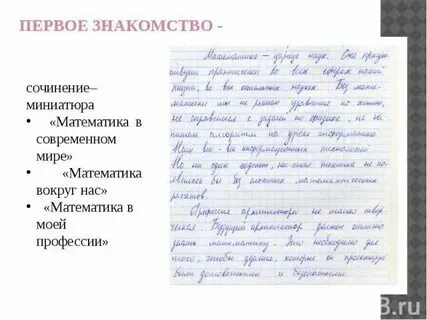 ПЕРВОЕ ЗНАКОМСТВО -
сочинение–
миниатюра
• «Математика в
современном
мире»
• «Математика
вокруг нас»
• «Математика в
моей
профессии»
Математика – царица наук. Она присут
ствует практически во всех сферах нашей
жизни, во всех остальных науках. Без мате-
матики мы не решим уравнение по химии,
не справимся с задачей по физике, не на
пишем алгоритм на уроке информатики.
век информационных технологий
Но ни один гаджет, ни одна техника не по
явилась бы без сложных математических
расчетов.
Профессия архитектора не только твор
ческая. Будущий архитектор должен отлично
знать математику. Это необходимо для
того, чтобы здание, которое он проектирует
были долговечными и безопасными.
3.ru